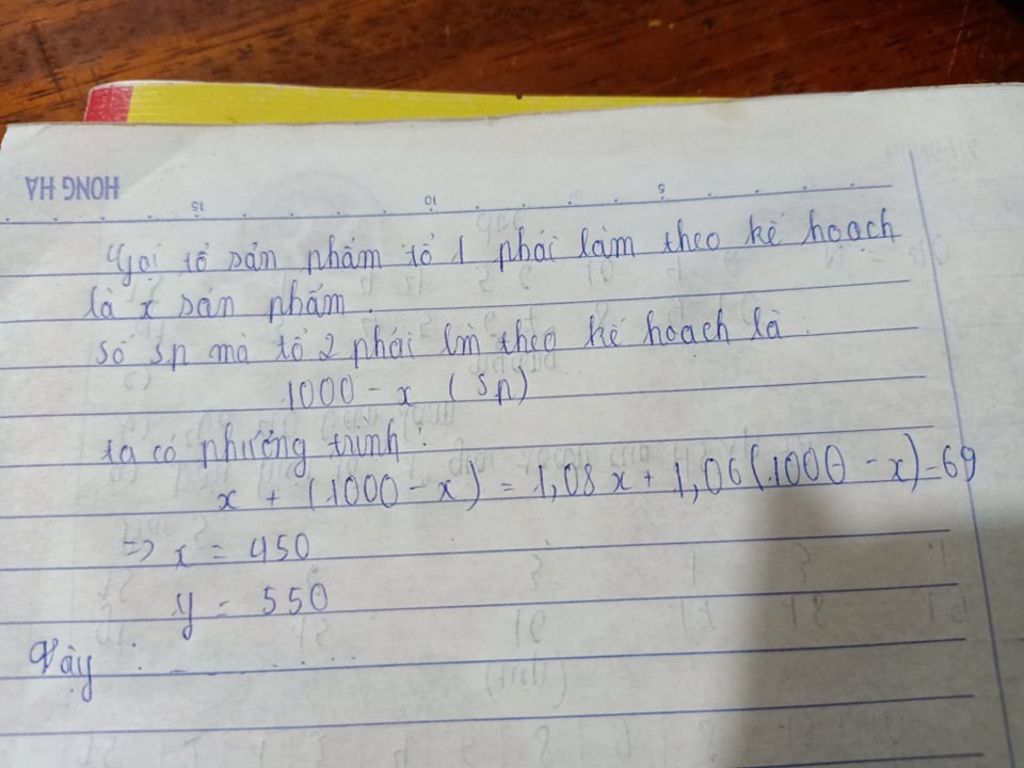 HONG HA
15 10 5
Gọi tổ sản phẩm tổ 1 phải làm theo kế hoạch
là x sản phẩm.
số sp mà tổ 2 phải lm theo kế hoạch là
1000 - x (sp)
ta có phương trình:
x + (1000 - x) = 1,08x + 1,06(1000 - x) - 69
=> x = 450
y = 550
Vậy : ..........